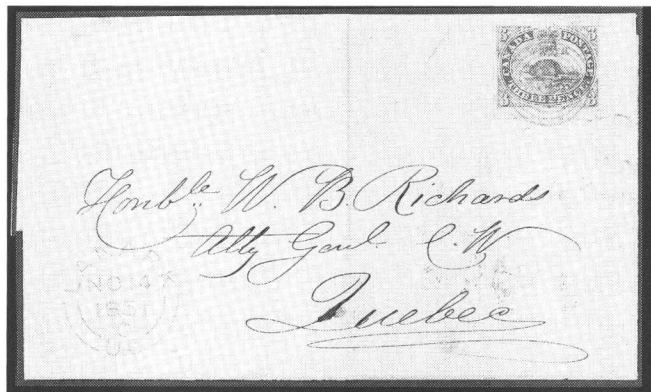 CANADA POSTAGE
THREE PENCE
3 3
3 3
Honble. W. B. Richards
Atty Genl C. W
Quebec